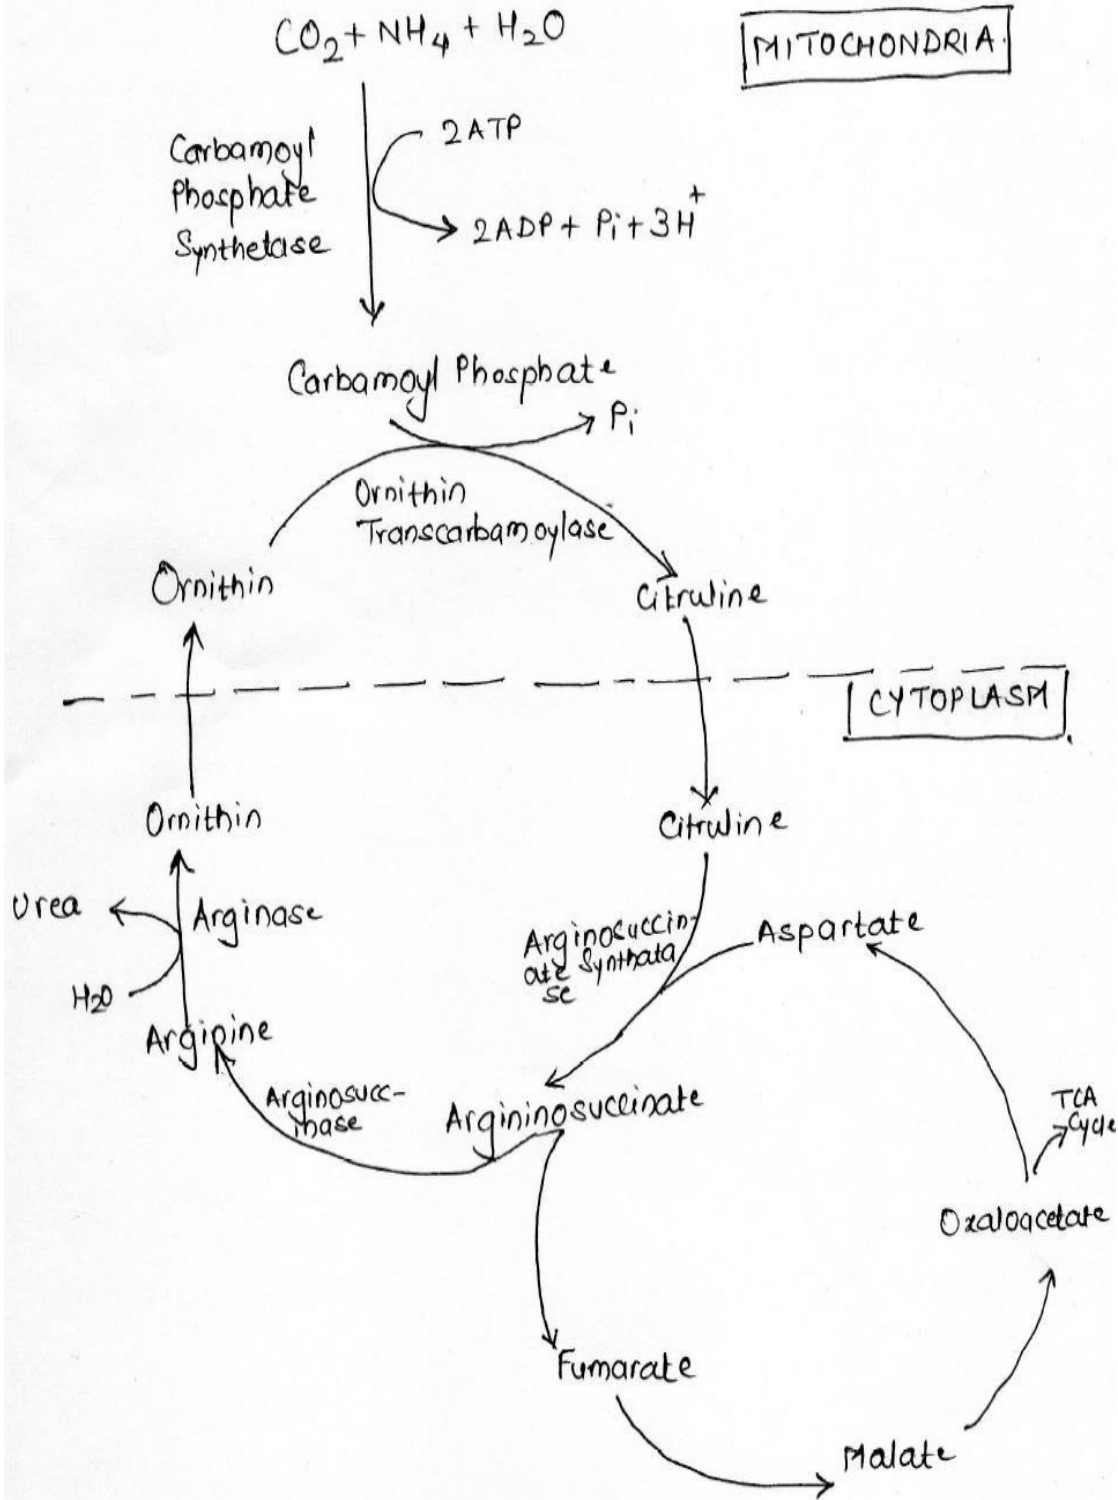 CO2 + NH4 + H2O
MITOCHONDRIA.
2ATP
Carbamoyl
Phosphate
Synthetase
2ADP + Pi + 3H+
Carbamoyl Phosphate
Pi
Ornithin
Transcarbamoylase
Ornithin
Citruline
CYTOPLASM
Ornithin
Citruline
Urea
Arginase
Arginosuccin-
ate Synthata
se
Aspartate
H2O
Arginine
Arginosucc-
inase
Argininosuccinate
TCA
Cycle
Oxaloacetate
Fumarate
Malate